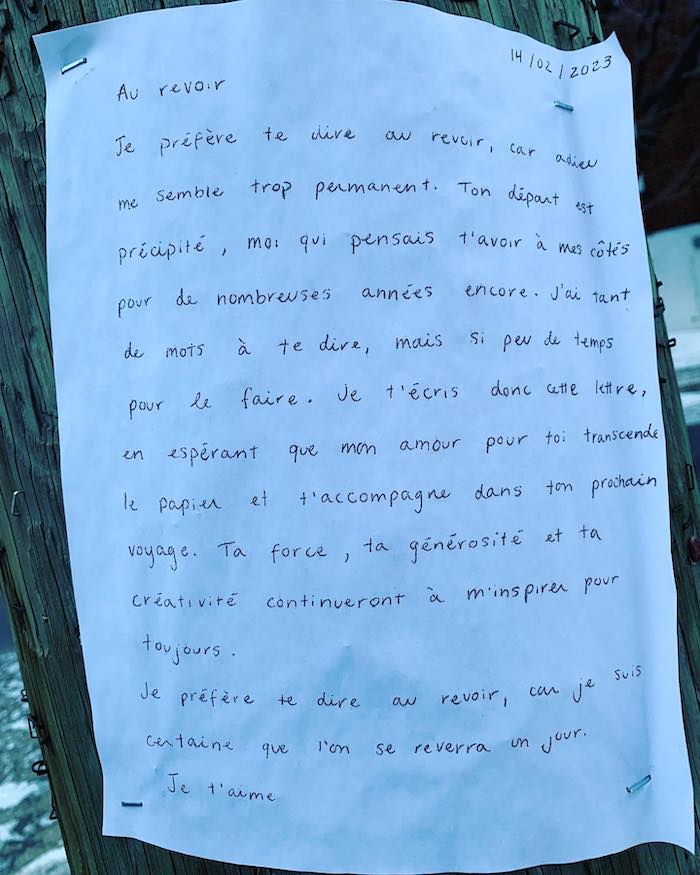 14/02/2023
Au revoir
Je préfère te dire au revoir, car adieu
me semble trop permanent. Ton départ est
précipité, moi qui pensais t'avoir à mes côtés
pour de nombreuses années encore. J'ai tant
de mots à te dire, mais si peu de temps
pour le faire. Je t'écris donc cette lettre,
en espérant que mon amour pour toi transcende
le papier et t'accompagne dans ton prochain
voyage. Ta force, ta générosité et ta
créativité continueront à m'inspirer pour
toujours.
Je préfère te dire au revoir, car je suis
certaine que l'on se reverra un jour.
Je t'aime